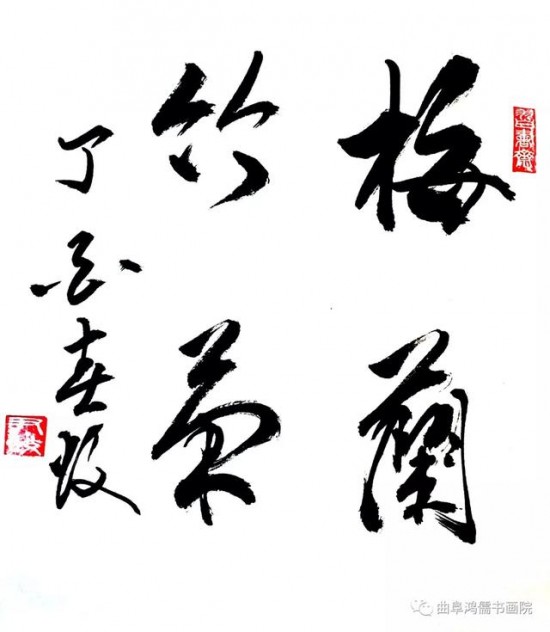 梅蘭
竹菊
丁酉春牧
曲阜鸿儒书画院